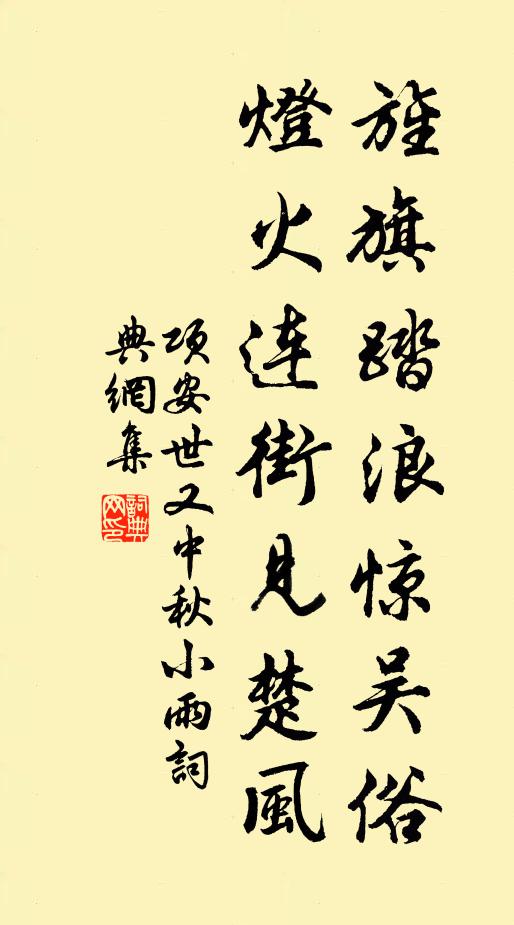 旌旗踏浪惊吴俗
燈火连街見楚風
项安世又中秋小雨詞
典網集
詞典网印